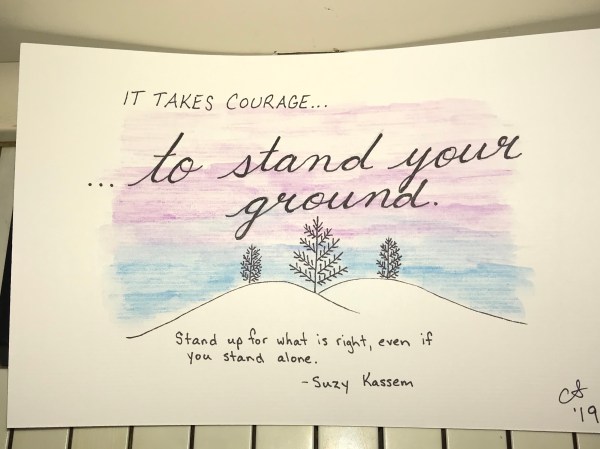 IT TAKES COURAGE...
... to stand your
ground.
Stand up for what is right, even if
you stand alone.
-Suzy Kassem
CS
'19